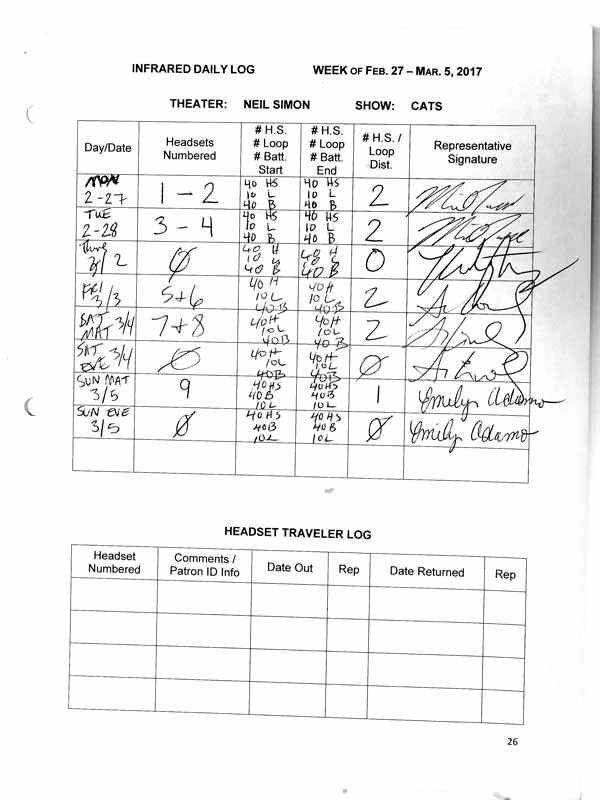 INFRARED DAILY LOG WEEK OF FEB. 27 – MAR. 5, 2017
THEATER: NEIL SIMON SHOW: CATS
Day/Date Headsets Numbered # H.S. # Loop # Batt. Start # H.S. # Loop # Batt. End # H.S. / Loop Dist. Representative Signature
MON 2-27 1 – 2 40 HS 10 L 40 B 40 HS 10 L 40 B 2
TUE 2-28 3 – 4 40 HS 10 L 40 B 40 HS 10 L 40 B 2
Thur 3/2 Ø 40 H 40 B 40 H 40 B 0
FRI 3/3 5+6 40H 10L 40B 40H 10L 40B 2
SAT MAT 3/4 7+8 40H 10L 40B 40H 10L 40B 2
SAT EVE 3/4 Ø 40H 10L 40B 40H 10L 40B Ø
SUN MAT 3/5 9 40HS 40B 10L 40HS 40B 10L 1 Emilyn Adamo
SUN EVE 3/5 Ø 40HS 40B 10L 40HS 40B 10L Ø Emilyn Adamo
HEADSET TRAVELER LOG
Headset Numbered Comments / Patron ID Info Date Out Rep Date Returned Rep
26